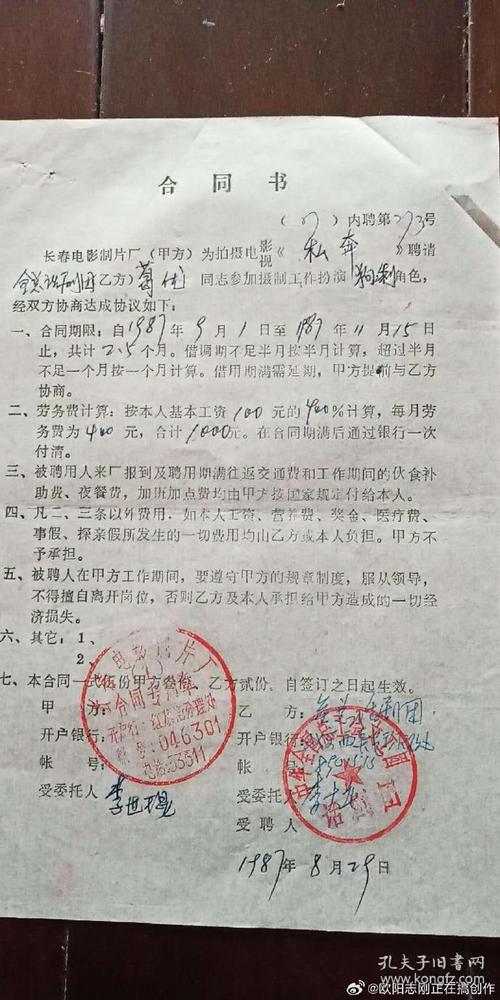 合同书
(87)内聘第273号
长春电影制片厂(甲方)为拍摄电影视《私奔》聘请
全总话剧团乙方)葛优同志参加摄制工作扮演 角色,
经双方协商达成协议如下:
一、合同期限:自1987年9月1日至1987年11月15日
止,共计2.5个月。借调期不足半月按半月计算,超过半月
不足一个月按一个月计算。借用期满需延期,甲方提前与乙方
协商。
二、劳务费计算:按本人基本工资100元的400%计算,每月劳
务费为400元,合计1000元。在合同期满后通过银行一次
付清。
三、被聘用人来厂报到及聘用期满往返交通费和工作期间的伙食补
助费、夜餐费,加班加点费均由甲方按国家规定付给本人。
四、凡二、三条以外费用,如本人工资、营养费、奖金、医疗费、
事假、探亲假所发生的一切费用均由乙方或本人负担。甲方不
予承担。
五、被聘人在甲方工作期间,要遵守甲方的规章制度,服从领导,
不得擅自离开岗位,否则乙方及本人承担给甲方造成的一切经
济损失。
六、其它:1、
2、
七、本合同一式伍份甲方叁份,乙方贰份。自签订之日起生效。
甲方:
乙方:全总话剧团
开户银行:
开户银行:
帐号:
帐号:
受委托人
受委托人
受聘人
电影制片厂
合同专用章
开户行:红旗街办理处
帐号:046301
电话:53311
中华全国总工会
话剧团
1987年8月29日
孔夫子旧书网
www.kongfz.com
@欧阳志刚正在搞创作